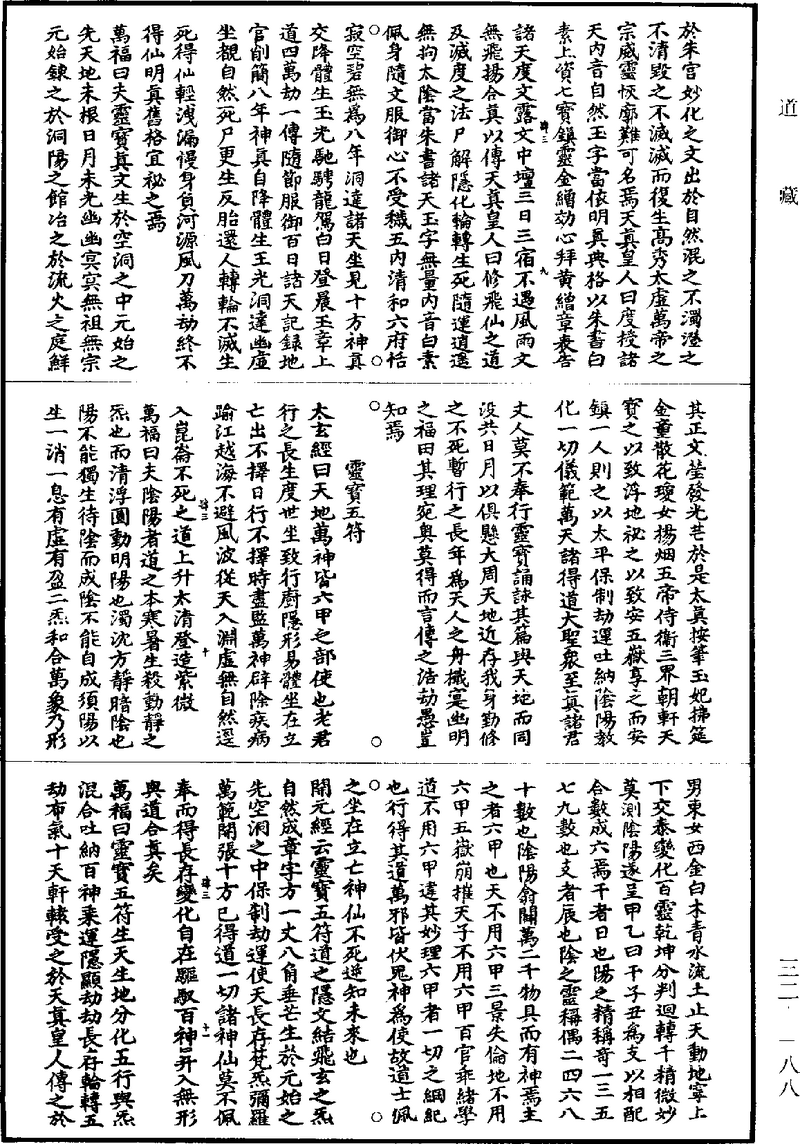 道藏
三二·一八八
於朱宮妙化之文出於自然混之不濁澄之
不清毀之不滅滅而復生高秀太虛萬帝之
宗威靈恢廓難可名焉天真皇人曰度授諸
天內音自然玉字當依明真典格以朱書白
素上資七寶鎮靈金繒効心拜黃繒章表告
諸天度文露文中壇三日三宿不遇風雨文
無飛揚合真以傳天真皇人曰修飛仙之道
及滅度之法尸解隱化輪轉生死隨運逍遙
無拘太陰當朱書諸天玉字無量內音白素
佩身隨文服御心不受穢五內清和六府恬
寂空碧無為八年洞達諸天坐見十方神真
交降體生玉光馳騁龍駕白日登晨玉章上
道四萬劫一傳隨節服御百日諸天記録地
官削簡八年神真自降體生玉光洞達幽虛
坐覩自然死尸更生反胎還人轉輪不滅生
死得仙輕洩漏慢身負河源風刀萬劫終不
得仙明真舊格宜祕之焉
萬福曰夫靈寶真文生於空洞之中元始之
先天地未根日月未光幽幽冥冥無祖無宗
元始鍊之於洞陽之館冶之於流火之庭鮮
其正文瑩發光芒於是太真按筆玉妃拂筵
金童散花瓊女揚烟五帝侍衛三界朝軒天
寶之以致浮地祕之以致安五嶽享之而安
鎮一人則之以太平保制劫運吐納陰陽教
化一切儀範萬天諸得道大聖眾至真諸君
丈人莫不奉行靈寶誦詠其篇與天地而同
没共日月以俱懸大周天地近存我身勤修
之不死暫行之長年為天人之舟檝寔幽明
之福田其理宛奧莫得而言傳之浩劫愚豈
知焉
靈寶五符
太玄經曰天地萬神皆六甲之部使也老君
行之長生度世坐致行廚隱形易體坐在立
亡出不擇日行不擇時盡監萬神辟除疾病
踰江越海不避風波從天入淵虛無自然遥
入崑崙不死之道上升太清登造紫微
萬福曰夫陰陽者道之本寒暑生殺動静之
炁也而清浮圓動明陽也濁沈方靜暗陰也
陽不能獨生待陰而成陰不能自成須陽以
生一消一息有虛有盈二炁和合萬象乃形
男東女西金白木青水流土止天動地寧上
下交泰變化百靈乾坤分判迴轉千精微妙
莫測陰陽遂呈甲乙曰干子丑為支以相配
合數成六焉干者日也陽之精稱奇一三五
七九數也支者辰也陰之靈稱偶二四六八
十數也陰陽翕闢萬二千物具而有神焉主
之者六甲也天不用六甲三景失倫地不用
六甲五嶽崩摧天子不用六甲百官乖緒學
道不用六甲違其妙理六甲者一切之綱紀
也行得其道萬邪皆伏鬼神為使故道士佩
之坐在立亡神仙不死逆知未來也
開元經云靈寶五符道之隱文結飛玄之炁
自然成章字方一丈八角垂芒生於元始之
先空洞之中保制劫運使天長存梵炁彌羅
萬範開張十方已得道一切諸神仙莫不佩
奉而得長存變化自在驅馭百神昇入無形
與道合真矣
萬福曰靈寶五符生天生地分化五行與炁
混合吐納百神乘運隱顯劫劫長存輪轉五
劫布氣十天軒轅受之於天真皇人傳之於